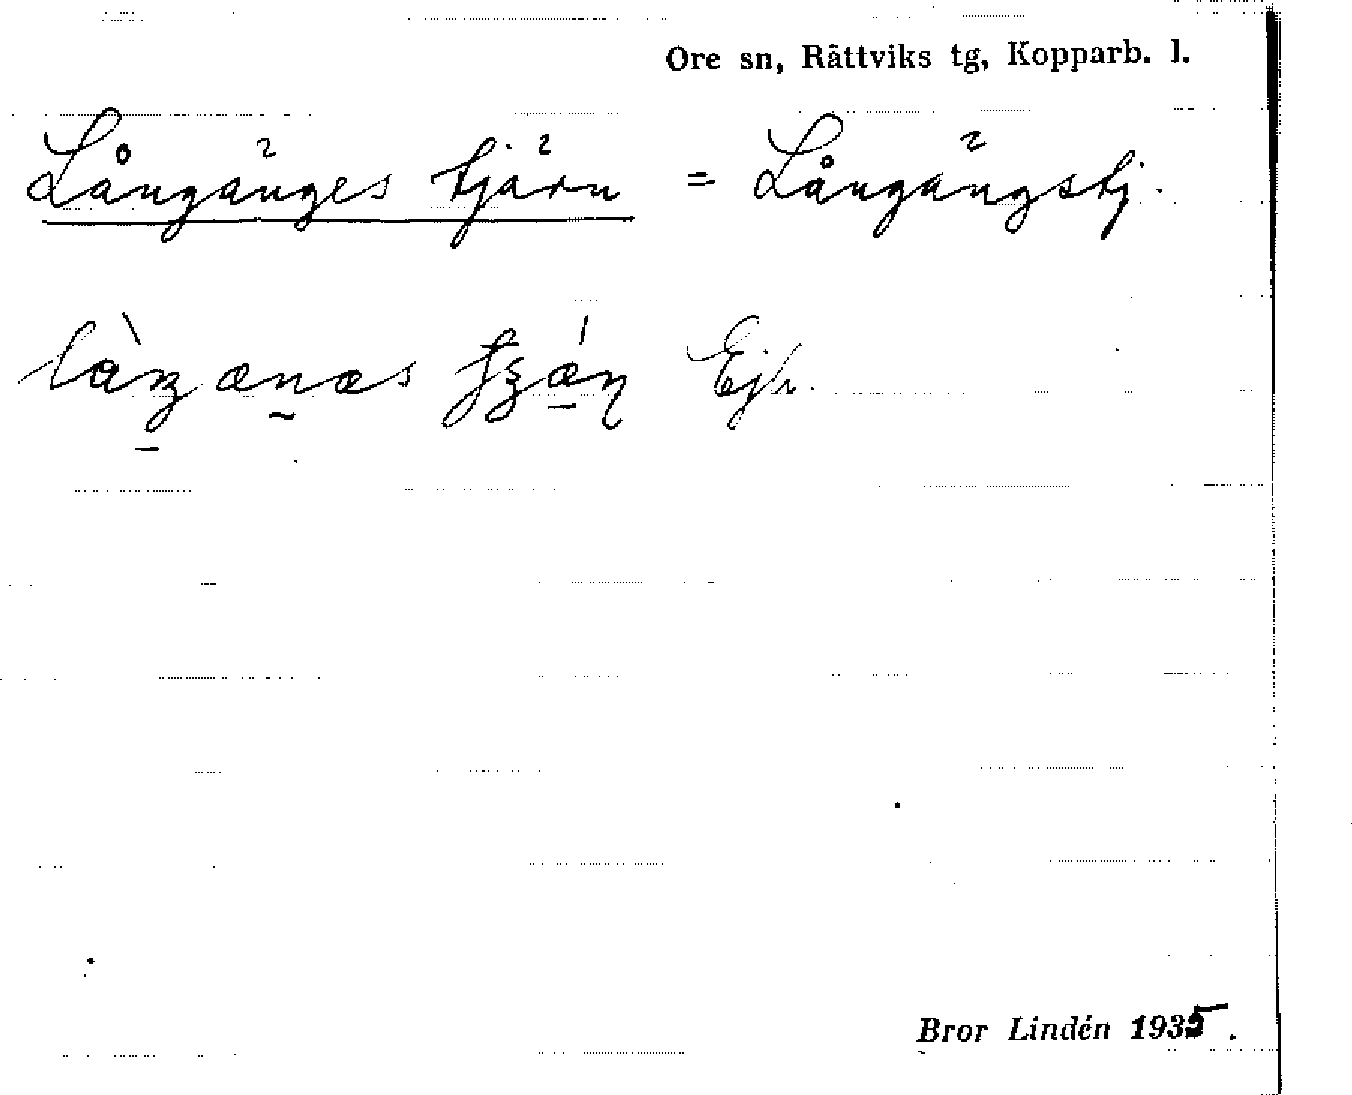 Ore sn, Rättviks tg, Kopparb. l.
Långänges tjärn = Långängstj.
Ejh.
Bror Lindén 1935.